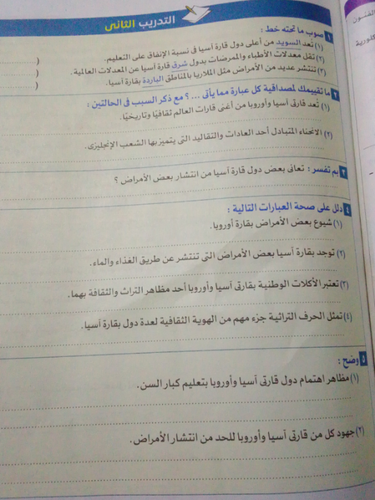 التدريب الثانى
١ صوب ما تحته خط :
(١) تعد السويد من أعلى دول قارة آسيا فى نسبة الإنفاق على التعليم. (
(٢) تقل معدلات الأطباء والممرضات بدول شرق قارة آسيا عن المعدلات العالمية. (
(٣) تنتشر عديد من الأمراض مثل الملاريا بالمناطق الباردة بقارة آسيا. (
٢ ما تقييمك لمصداقية كل عبارة مما يأتى ...؟ مع ذكر السبب فى الحالتين :
(١) تُعد قارتا آسيا وأوروبا من أغنى قارات العالم ثقافيًا وتاريخيًا.
(٢) الانحناء المتبادل أحد العادات والتقاليد التى يتميز بها الشعب الإنجليزى.
٣ بم تفسر : تعانى بعض دول قارة آسيا من انتشار بعض الأمراض ؟
٤ دلل على صحة العبارات التالية :
(١) شيوع بعض الأمراض بقارة أوروبا.
(٢) توجد بقارة آسيا بعض الأمراض التى تنتشر عن طريق الغذاء والماء.
(٣) تعتبر الأكلات الوطنية بقارتى آسيا وأوروبا أحد مظاهر التراث والثقافة بهما.
(٤) تمثل الحرف التراثية جزء مهم من الهوية الثقافية لعدة دول بقارة آسيا.
٥ وضح :
(١) مظاهر اهتمام دول قارتى آسيا وأوروبا بتعليم كبار السن.
(٢) جهود كل من قارتى آسيا وأوروبا للحد من انتشار الأمراض.